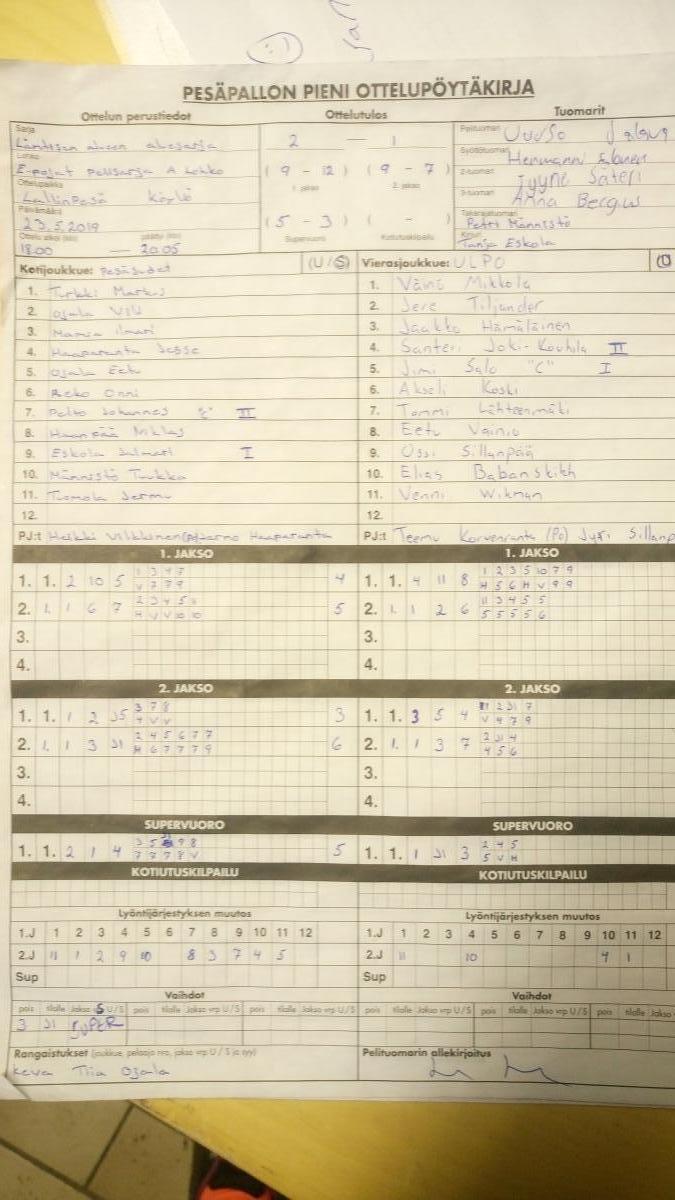 :)
PESÄPALLON PIENI OTTELUPÖYTÄKIRJA
Ottelun perustiedot Ottelutulos Tuomarit
Sarja
Läntisen alueen aluesarja
Lohko
E-pojat pelisarja A Lohko
Ottelupaikka
LallinPesä Köyliö
Päivämäärä
23.5.2019
18.00 — 20.05
2 — 1
( 9 - 12 ) ( 9 - 7 )
1. jakso 2. jakso
( 5 - 3 ) ( - )
Supervuoro Kotiutuskilpailu
Pelituomari
Syöttötuomari Hermanni
2-tuomari Jyyne Säteri
3-tuomari Anna Bergus
Takarajatuomari Petri Männistö
Kirjuri Tanja Eskola
Kotijoukkue: Pesäsudet (U/S)
1. Turkki Markus
2. Ojala Vili
3. Mansa Ilmari
4. Haaparanta Jesse
5. Ojala Eetu
6. Reko Onni
7. Pelto Johannes "C" II
8. Haanpää Niklas
9. Eskola Jalmari I
10. Männistö Tuukka
11. Tuomola Jermu
12.
PJ:t Heikki Vilkkinen (PJ) Jarmo Haaparanta
Vierasjoukkue: ULPO (U
1. Väinö Mikkola
2. Jere Tiljander
3. Jaakko Hämäläinen
4. Santeri Joki-Kouhila II
5. Jimi Salo "C" I
6. Akseli Koski
7. Tommi Lähteenmäki
8. Eetu Vainio
9. Ossi Sillanpää
10. Elias Babanskikh
11. Venni Wikman
12.
PJ:t Teemu Korvenranta (PJ) Jyri Sillanp
1. JAKSO 1. JAKSO
1. 1. 2 10 5 1 3 4 7 4
V 7 7 9
2. 1. 1 6 7 2 3 4 5 5
H V V 10 10
3.
4.
1. 1. 4 11 8 1 2 3 5 10 7 9
H 5 6 H V 9 9
2. 1. 1 2 6 11 3 4 5 5
5 5 5 5 6
3.
4.
2. JAKSO 2. JAKSO
1. 1. 1 2 J5 3 7 8 3
4 V V
2. 1. 1 3 J1 2 4 5 6 7 7 6
H 6 7 7 7 9
3.
4.
1. 1. 3 5 4 1 2 J1 7
V 4 7 9
2. 1. 1 3 7 2 J1 4
4 5 6
3.
4.
SUPERVUORO SUPERVUORO
1. 1. 2 1 4 3 5 9 8 5
7 7 7 8 V
1. 1. 1 J1 3 2 4 5
5 V H
KOTIUTUSKILPAILU KOTIUTUSKILPAILU
Lyöntijärjestyksen muutos Lyöntijärjestyksen muutos
1.J 1 2 3 4 5 6 7 8 9 10 11 12
2.J 11 1 2 9 10 8 3 7 4 5
Sup
1.J 1 2 3 4 5 6 7 8 9 10 11 12
2.J 11 10 4 1
Sup
Vaihdot Vaihdot
pois tilalle Jakso vrp U/S pois tilalle Jakso vrp U/S pois tilalle Jakso vrp U/S
3 J1 SUPER
pois tilalle Jakso vrp U/S pois tilalle Jakso vrp U/S pois tilalle Jakso
Rangaistukset (joukkue, pelaaja nro, jakso vrp U / S ja syy)
keva Tiia Ojala
Pelituomarin allekirjoitus